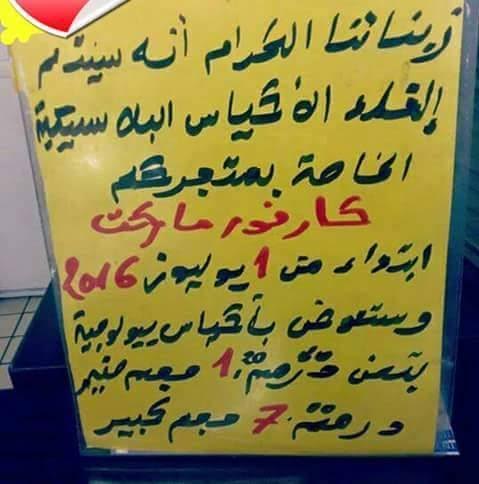 زبنائنا الكرام أنه سيتم
إلغاء الأكياس البلاستيكية
الخاصة بمتجركم
كارفور ماركت
ابتداء من 1 يوليوز 2016
وستعوض بأكياس بيولوجية
بثمن درهم 1,20 حجم صغير
درهم 7 حجم كبير